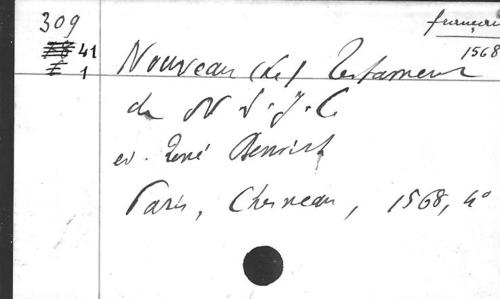 309
français
41
1568
1
Nouveau (Le) Testament
de N. S. J. C.
ed. René Benoist
Paris, Chesneau, 1568, 4°